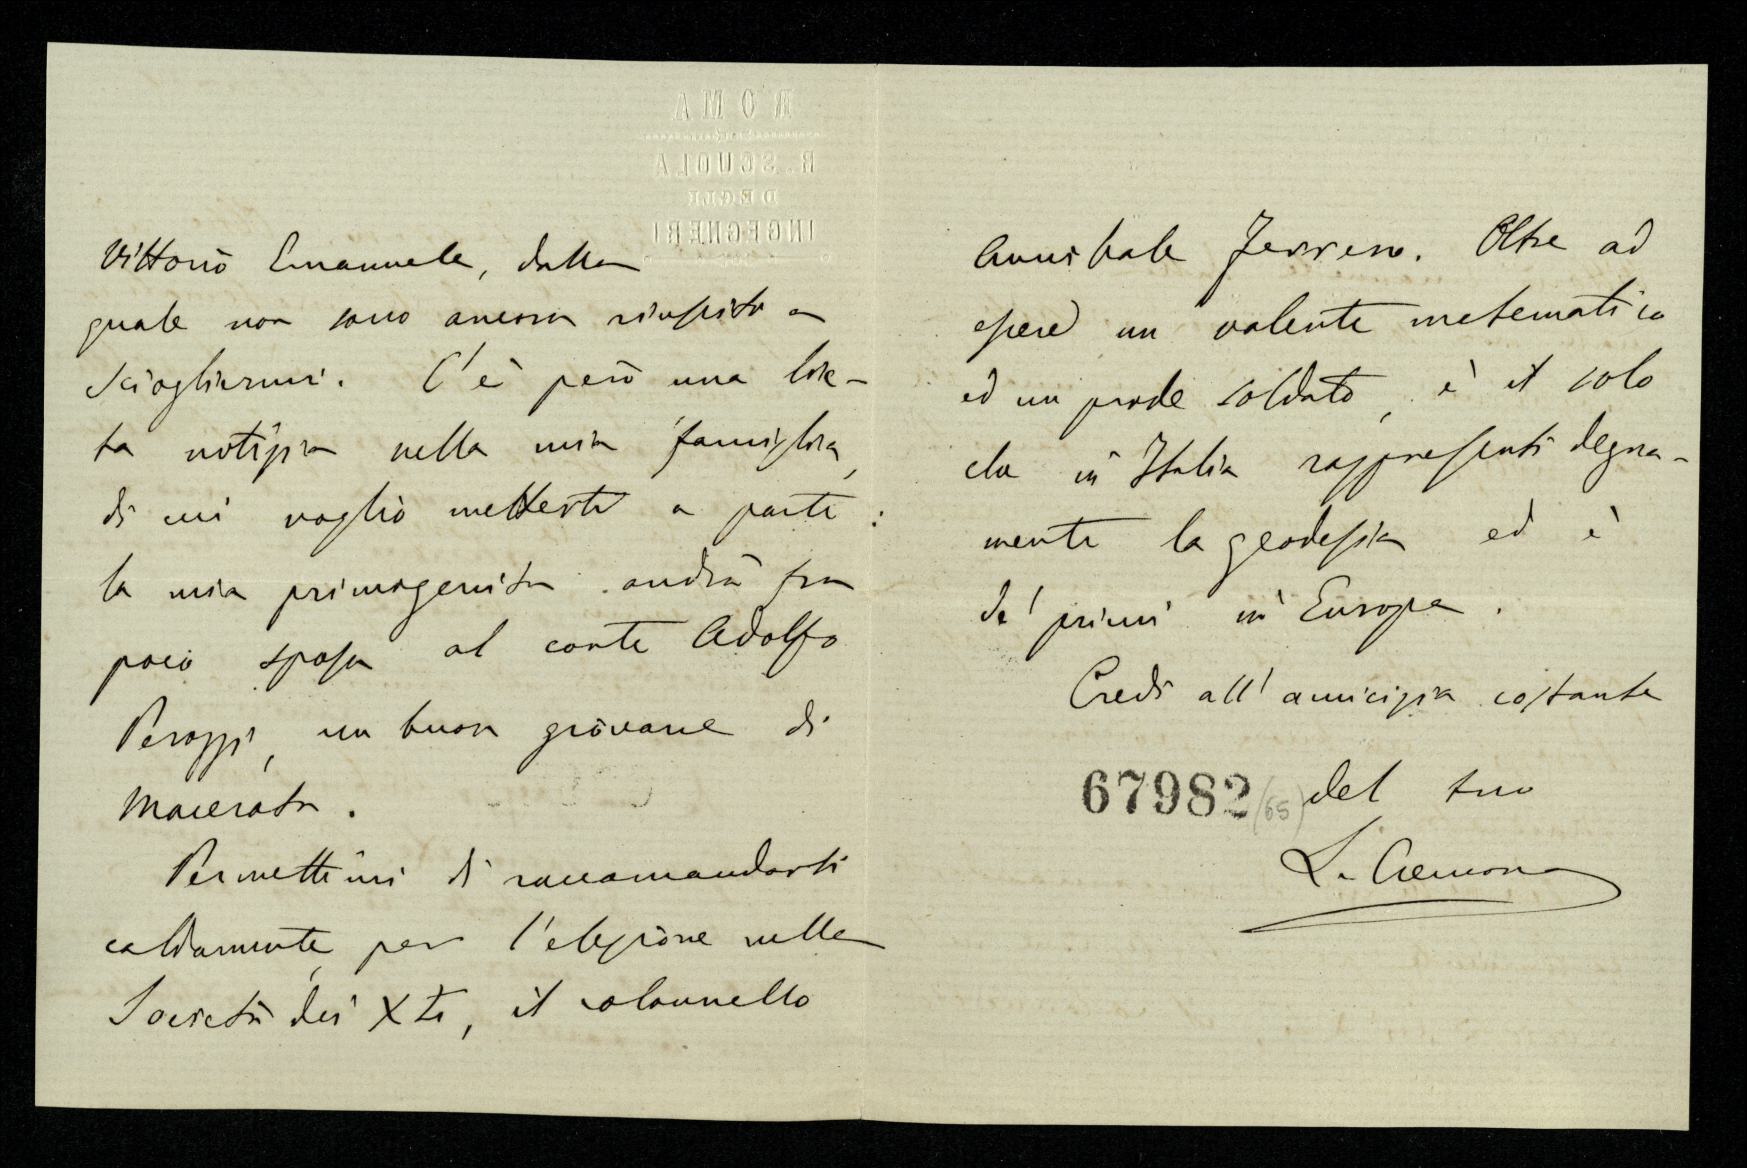 ROMA
R. SCUOLA
DEGLI
INGEGNERI
Vittorio Emanuele, dalla
quale non sono ancora riuscito a
sciogliermi. C'è però una lie-
ta notizia nella mia famiglia,
di cui voglio metterti a parte:
la mia primogenita andrà fra
poco sposa al conte Adolfo
Perozzi, un buon giovane di
Macerata.
Permettimi di raccomandarti
caldamente, per l'elezione nella
Società dei XL, il colonnello
Annibale Ferrero. Oltre ad
essere un valente matematico
ed un prode soldato, è il solo
che in Italia rappresenti degna-
mente la geodesia ed è
de' primi in Europa.
Credi all'amicizia costante
del tuo
67982 (65)
L. Cremona